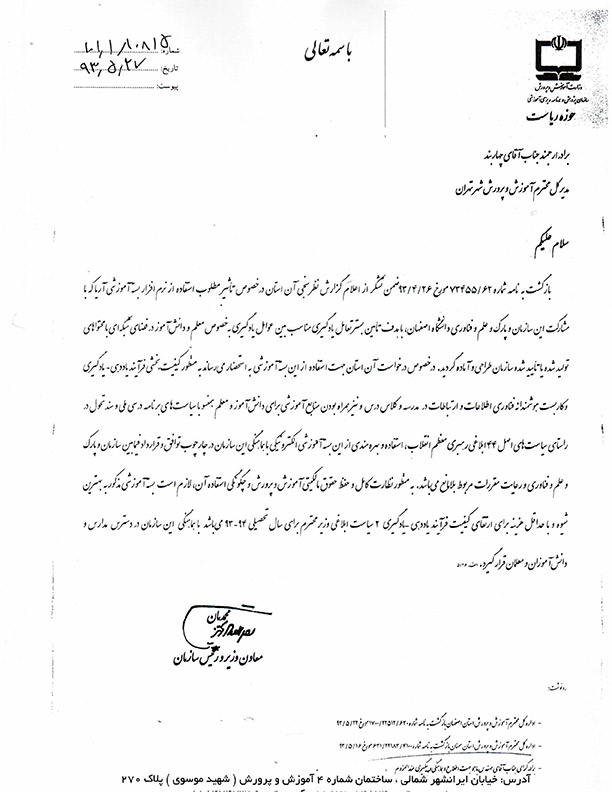 باسمه تعالی
شماره: ۲۰۱/۱۰۸۱۵
تاریخ: ۹۳,۵,۲۷
پیوست:
وزارت آموزش و پرورش
سازمان پژوهش و برنامه ریزی آموزشی
حوزه ریاست
برادر ارجمند جناب آقای چهاربند
مدیر کل محترم آموزش و پرورش شهر تهران
سلام علیکم
بازگشت به نامه شماره ۷۳۴۵۵/۶۲ مورخ ۹۳/۴/۲۶ ضمن تشکر از اعلام گزارش نظرسنجی آن استان درخصوص تأثیر مطلوب استفاده از نرم افزار بسته آموزشی آریا که با
مشارکت این سازمان و پارک و علم و فناوری دانشگاه اصفهان، با هدف تأمین بستر تعامل یادگیری مناسب بین عوامل یادگیری به خصوص معلم و دانش آموز در فضای شبکه ای با محتواهای
تولید شده یا تأیید شده سازمان طراحی و آماده گردید. درخصوص درخواست آن استان جهت استفاده از این بسته آموزشی به استحضار می رساند به منظور کیفیت بخشی فرآیند یاددهی - یادگیری
و کاربست هوشمندانه فناوری اطلاعات و ارتباطات در مدرسه و کلاس درس و نیز همراه بودن منابع آموزشی برای دانش آموز و معلم همسو با سیاست های برنامه درسی ملی و سند تحول در
راستای سیاست های اصل ۴۴ ابلاغی رهبری معظم انقلاب، استفاده و بهره مندی از این بسته آموزشی الکترونیکی با هماهنگی این سازمان در چارچوب توافق و قرارداد فیمابین سازمان و پارک
و علم و فناوری و رعایت مقررات مربوط بلامانع می باشد. به منظور نظارت کامل و حفظ حقوق مالکیتی آموزش و پرورش و چگونگی استفاده آن، لازم است بسته آموزشی مذکور به بهترین
شیوه و با حداقل هزینه برای ارتقای کیفیت فرآیند یاددهی - یادگیری ۲ سیاست ابلاغی وزیر محترم برای سال تحصیلی ۹۴-۹۳ می باشد با هماهنگی این سازمان در دسترس مدارس و
دانش آموزان و معلمان قرار گیرد.
معاون وزیر و رئیس سازمان
رونوشت:
- اداره کل محترم آموزش و پرورش استان اصفهان بازگشت به نامه شماره ۱۷۰۰/۲۲۵۱۲/۶۲۰ مورخ ۹۳/۵/۲۲
- اداره کل محترم آموزش و پرورش استان سمنان بازگشت به نامه شماره مورخ ۹۳/۵/۱۶
آدرس: خیابان ایرانشهر شمالی ، ساختمان شماره ۴ آموزش و پرورش ( شهید موسوی ) پلاک ۲۷۰